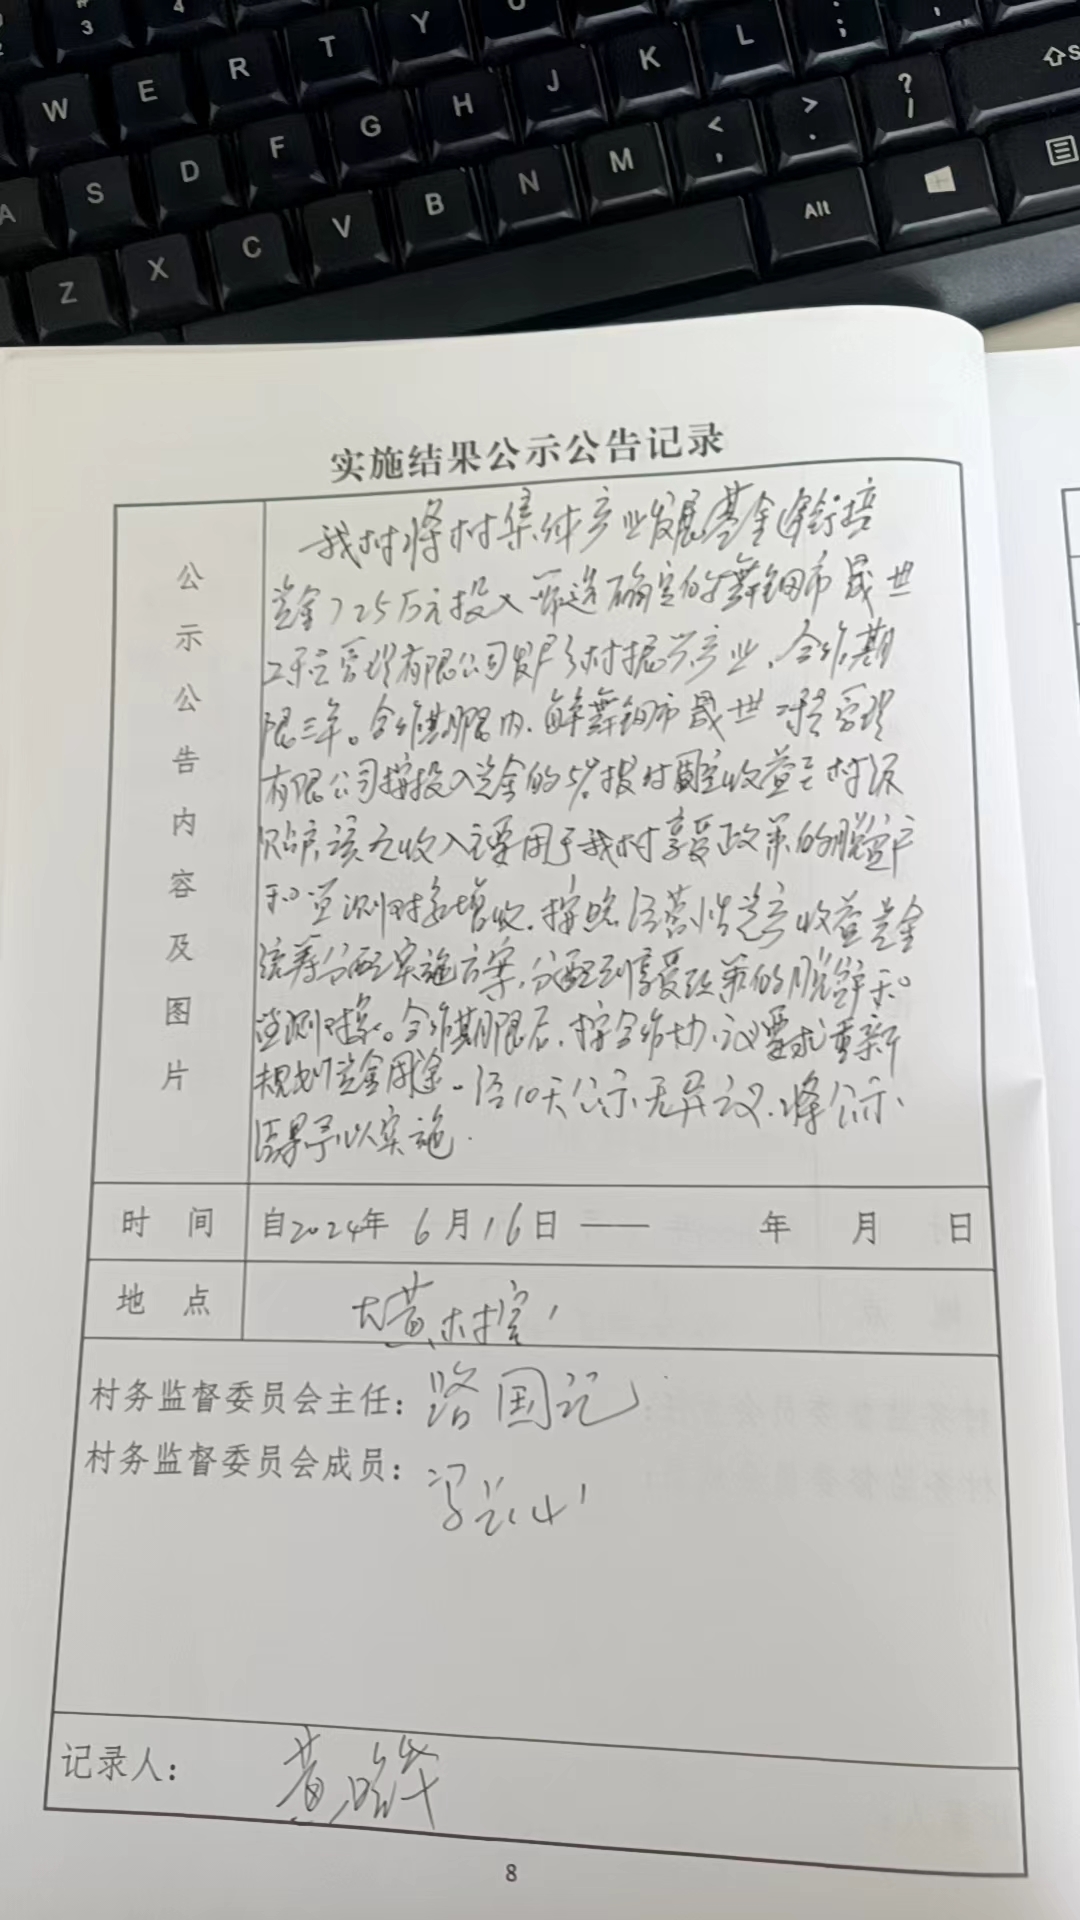 3
4
W E R T Y U
A S D F G H J K L : ;
Z X C V B N M < , > . ? /
Alt
实施结果公示公告记录
公示公告内容及图片
我村将村集体产业发展基金
资金 25万元投入 确定的舞钢市晟世
工程管理有限公司发展乡村振兴产业，合作期
限三年。合作期限内，由舞钢市晟世工程管理
有限公司按投入资金的5% 固定收益 村级
账户，该收入主要用于我村享受政策的脱贫户
和监测对象增收，按照经营性资产收益资金
统筹分配实施方案，分配到享受政策的脱贫户和
监测对象。合作期限后，按合作协议要求重新
规划资金用途。经10天公示无异议，将公示
结果予以实施.
时间 自2024年 6月16日 —— 年 月 日
地点 大黄村室
村务监督委员会主任：路国记
村务监督委员会成员：
记录人： 黄
8